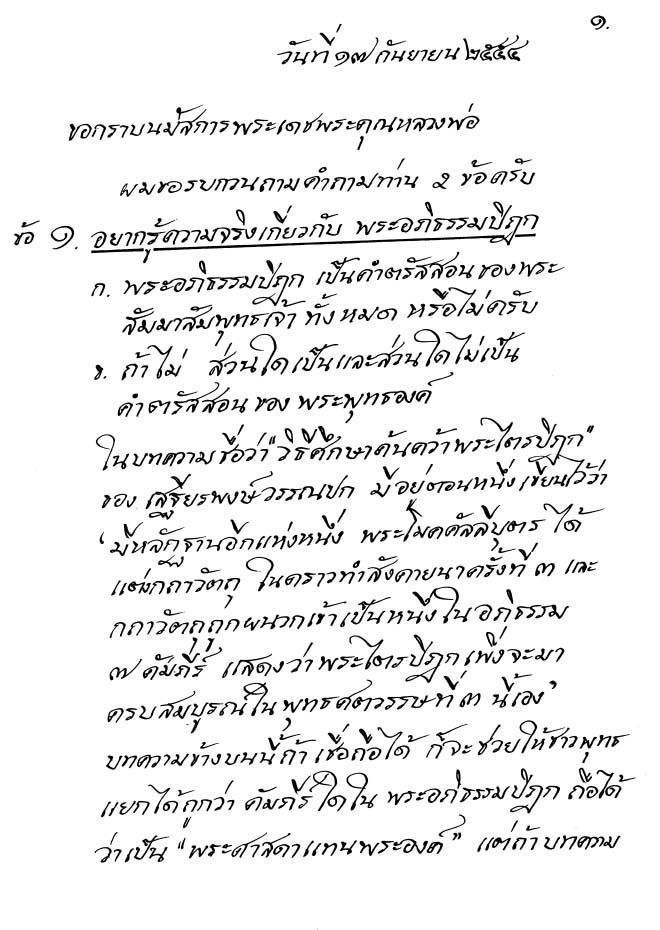 ๑.
วันที่ ๑๗ กันยายน ๒๕๕๔
ขอกราบนมัสการพระเดชพระคุณหลวงพ่อ
ผมขอรบกวนถามคำถามท่าน 2 ข้อครับ
ข้อ ๑. อยากรู้ความจริงเกี่ยวกับ พระอภิธรรมปิฎก
ก. พระอภิธรรมปิฎก เป็นคำตรัสสอนของพระ
สัมมาสัมพุทธเจ้า ทั้งหมด หรือไม่ครับ
ข. ถ้าไม่ ส่วนใดเป็นและส่วนใดไม่เป็น
คำตรัสสอน ของ พระพุทธองค์
ในบทความชื่อว่า "วิธีศึกษาค้นคว้าพระไตรปิฎก"
ของ เสฐียรพงษ์วรรณปก มีอยู่ตอนหนึ่ง เขียนไว้ว่า
'มีหลักฐานอีกแห่งหนึ่ง พระโมคคัลลีบุตร ได้
แต่งกถาวัตถุ ในคราวทำสังคายนาครั้งที่ ๓ และ
กถาวัตถุถูกผนวกเข้าเป็นหนึ่งใน อภิธรรม
๗ คัมภีร์ แสดงว่าพระไตรปิฎกเพิ่งจะมา
ครบสมบูรณ์ในพุทธศตวรรษที่ ๓ นี้เอง'
บทความข้างบนนี้ถ้า เชื่อถือได้ ก็จะช่วยให้ชาวพุทธ
แยกได้ถูกว่า คัมภีร์ ใดใน พระอภิธรรมปิฎก ถือได้
ว่าเป็น "พระศาสดาแทนพระองค์" แต่ถ้า บทความ